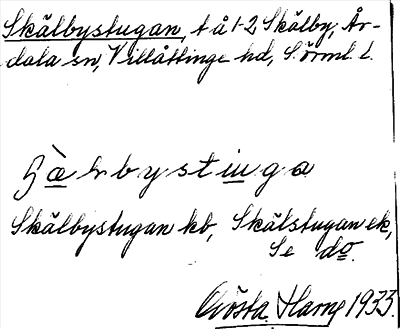 Skälbystugan, t å 1-2 Skälby, År-
dala sn, Villåttinge hd, Sörml. l.
Skälbystugan kb, Skälstugan ek,
Se do.
Gösta Harne 1933.